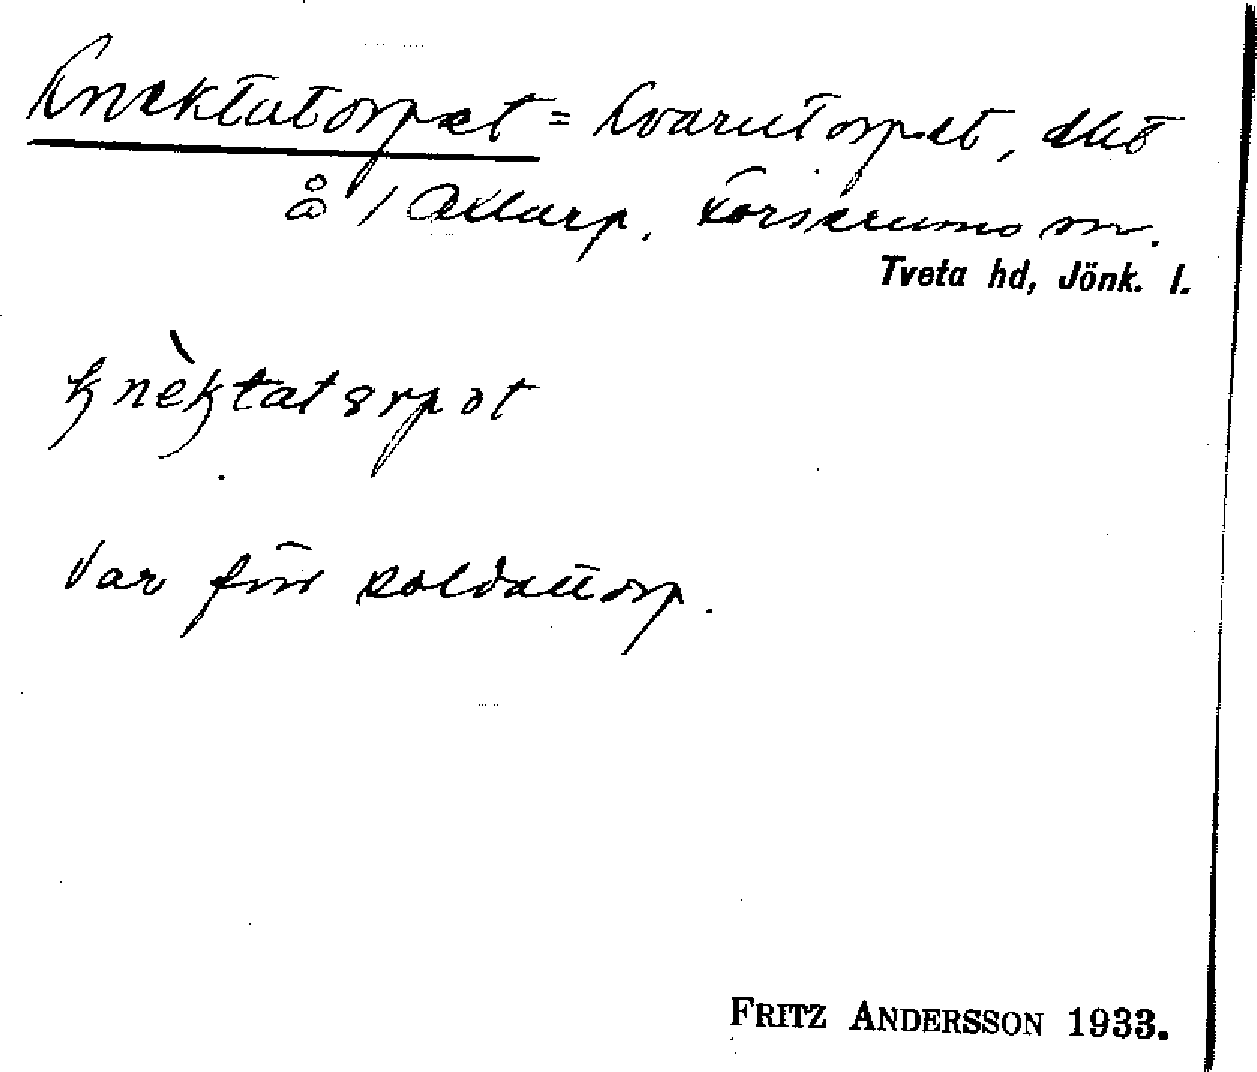 Knektatorpet = Kvarntorpet, det
å 1 Attarp, Forserums sn.
Tveta hd, Jönk. l.
knèktatørpət
Var förr soldattorp.
FRITZ ANDERSSON 1933.